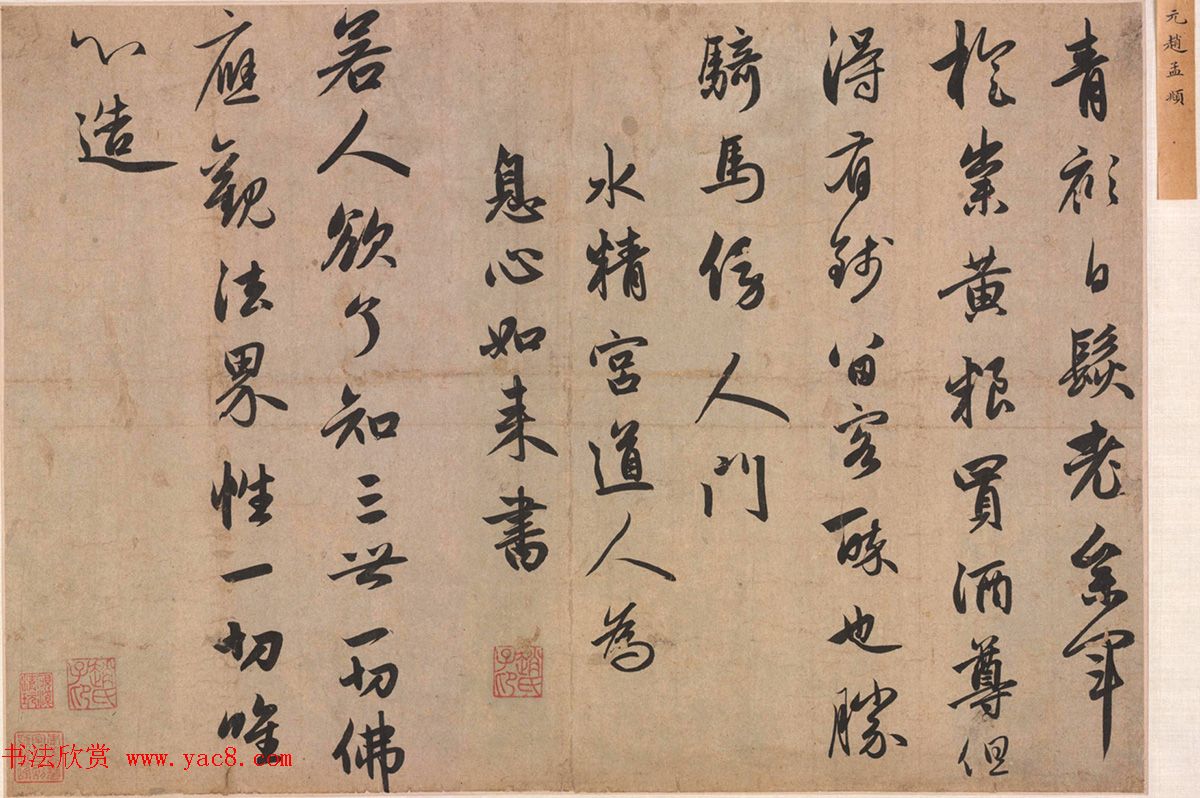 元趙孟頫
青衫白髮老参軍
旋糶黄粮買酒尊但
得有錢留客醉也勝
騎馬傍人門
水精宮道人為
息心如来書
趙氏子昂
若人欲了知三世一切佛
應觀法界性一切唯
心造
趙氏子昂
书法欣赏 www.yac8.com